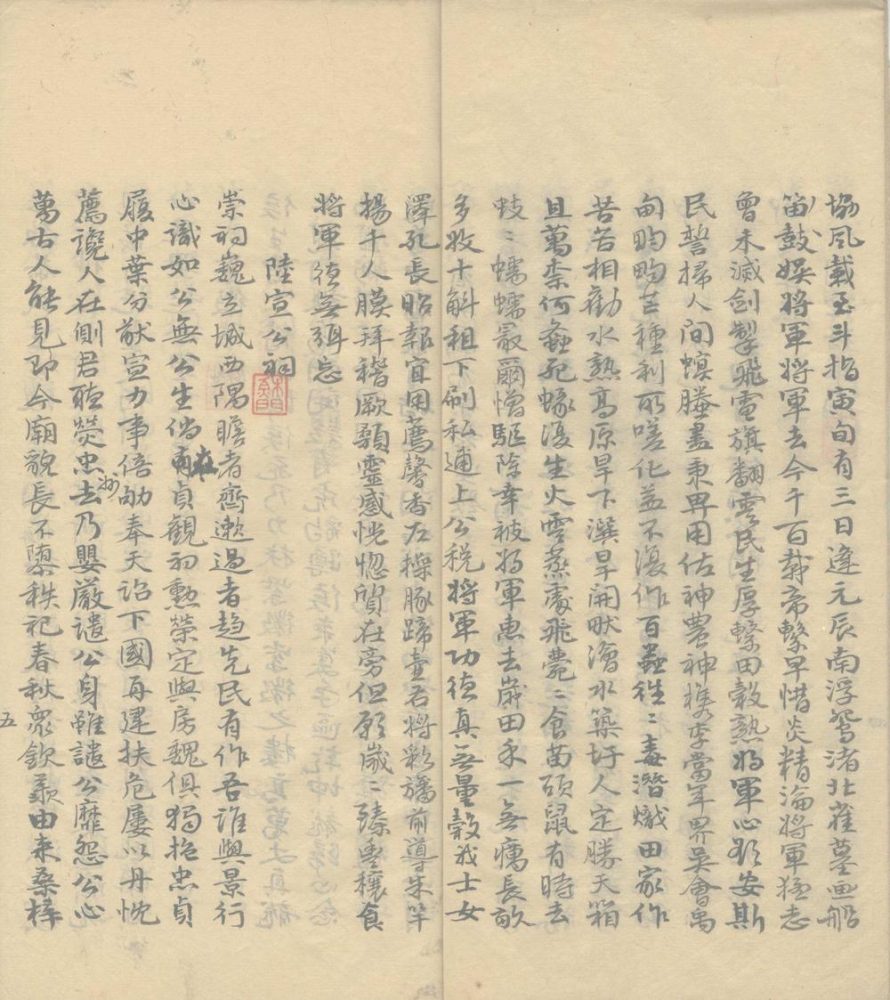 協風載至斗指寅旬有三日逢元辰南浮鴛渚北雀墓画船
笛鼓娛將軍將軍去今千百載帝繫早惜炎精淪將軍猛志
曾未減劍掣飛電旗翻雲民生厚繫田穀熟將軍心影安斯
民誓掃人間螟螣盡秉畀用佐神農神攜李當年界吳會萬
甸畇畇芒種利所嗟化益不復作百蟲往二毒潛熾田家作
苦苦相勸水熟高原旱下潠旱開畎澮水築圩人定勝天箱
且萬柰何蟲死蝝復生火雲蒸處飛薨二食苗碩鼠有時去
蚑二蠕蠕最爾憎驅除幸被將軍惠去歲田禾一無癘長畝
多收十斛租下刷私逋上公稅將軍功德真無量穀我士女
澤孔長昭報宜用薦馨香左操豚蹄壺右將彩旛前導朱竿
揚千人膜拜稽厥顙靈感恍惚質在旁但願歲二臻豐穰食
將軍德無弭忘
陸宣公祠
崇祠巍立城西隅瞻者齊漱過者趨先民有作吾誰與景行
心識如公無公生倘在貞觀初勳榮定與房魏俱獨抱忠貞
履中葉分猷宣力事倍劬奉天詔下國再建扶危屢以丹忱
薦讒人在側君聽熒忠州去乃嬰嚴譴公身雖譴公靡怨公心
萬古人能見即今廟貌長不隳秩祀春秋眾欽羨由来桑梓
五